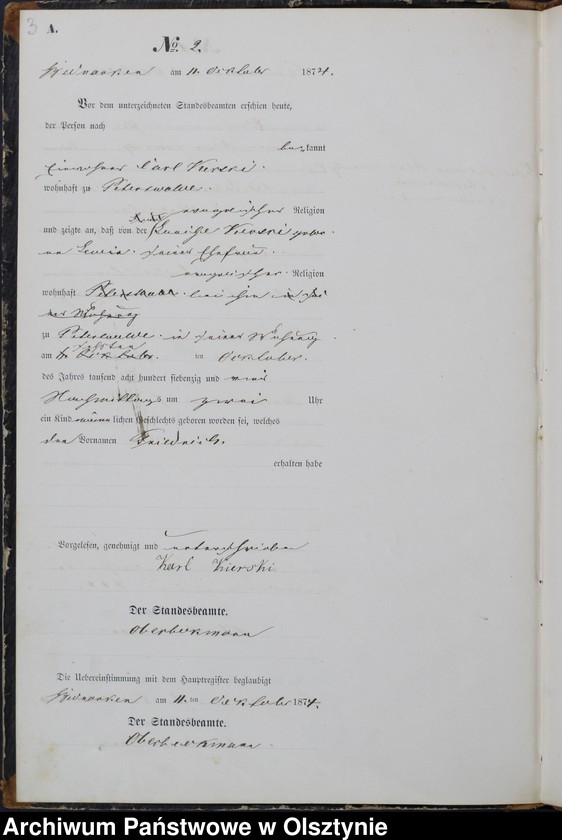 3
A.
No. 2.
am 11. October 1874.
Vor dem unterzeichneten Standesbeamten erschien heute,
der Person nach
bekannt
Einwohner Carl Kierski.
wohnhaft zu Peterswalde.
evangelischer Religion
und zeigte an, daß von der Kierski gebor-
ne seiner Ehefrau.
evangelischer Religion
wohnhaft Peterswalde bei ihm in
der Wohnung
zu Peterswalde in seiner Wohnung
am ten October.
des Jahres tausend acht hundert siebenzig und vier
Nachmittags um zwei Uhr
ein Kind männlichen Geschlechts geboren worden sei, welches
den Vornamen Friedrich.
erhalten habe
Vorgelesen, genehmigt und unterschrieben
Karl Kierski
Der Standesbeamte.
Oberbeckmann
Die Uebereinstimmung mit dem Hauptregister beglaubigt
am 11. ten October 1874.
Der Standesbeamte.
Oberbeckmann.
Archiwum Państwowe w Olsztynie